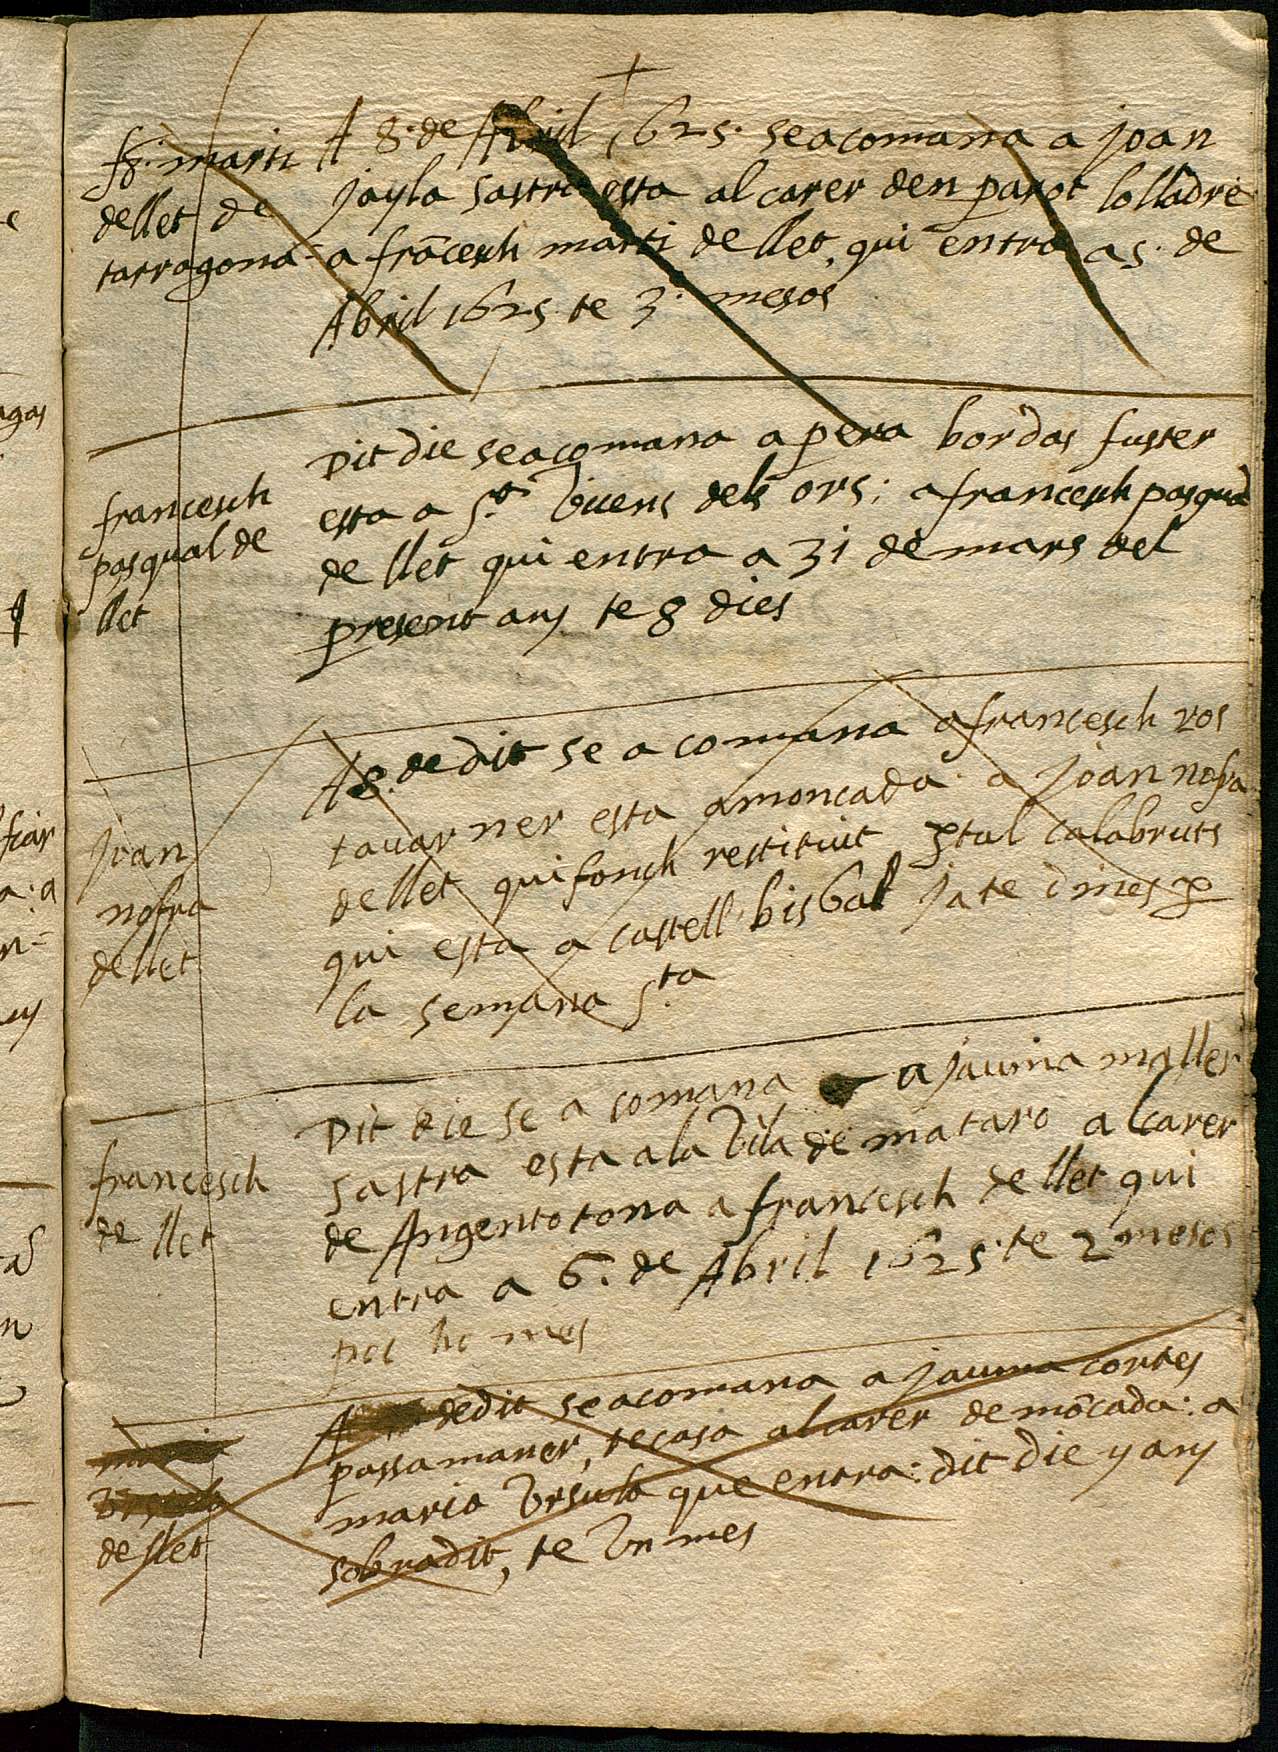 +
fr. marti
dellet de
tarragona
A 8. de Abril 1625. seacomana a joan
jayla sastre esta al carer den parot lolladre
a frãcesch marti de llet, qui entra a 5. de
Abril 1625. te 3. mesos
francesch
pasqual de
llet
Dit die seacomana a pera bordas fuster
esta a St. Vicens dels ors; a francesch pasqual
de llet qui entra a 31 de mars del
present any te 8 dies
Joan
nofra
de llet
A 8. de dit se a comana a francesch ros
tauarner esta a moncada. a joan nofra
dellet qui fonch restituit calabruts
qui esta a castell bisbal ja te dines p
la semana Sta
francesch
de llet
Dit die se a comana a jauma moller
sastra esta a la Vila de mataro al carer
de Angentotona a francesch de llet qui
entra a 6. de Abril 1625. te 2 mesos
poc ho mes
maria
Vrsula
de llet
A dedit seacomana a jauma cortes
passamaner, te casa al carer de mõcada: a
maria Vrsula que entra: dit die y any
sobradit, te Vn mes